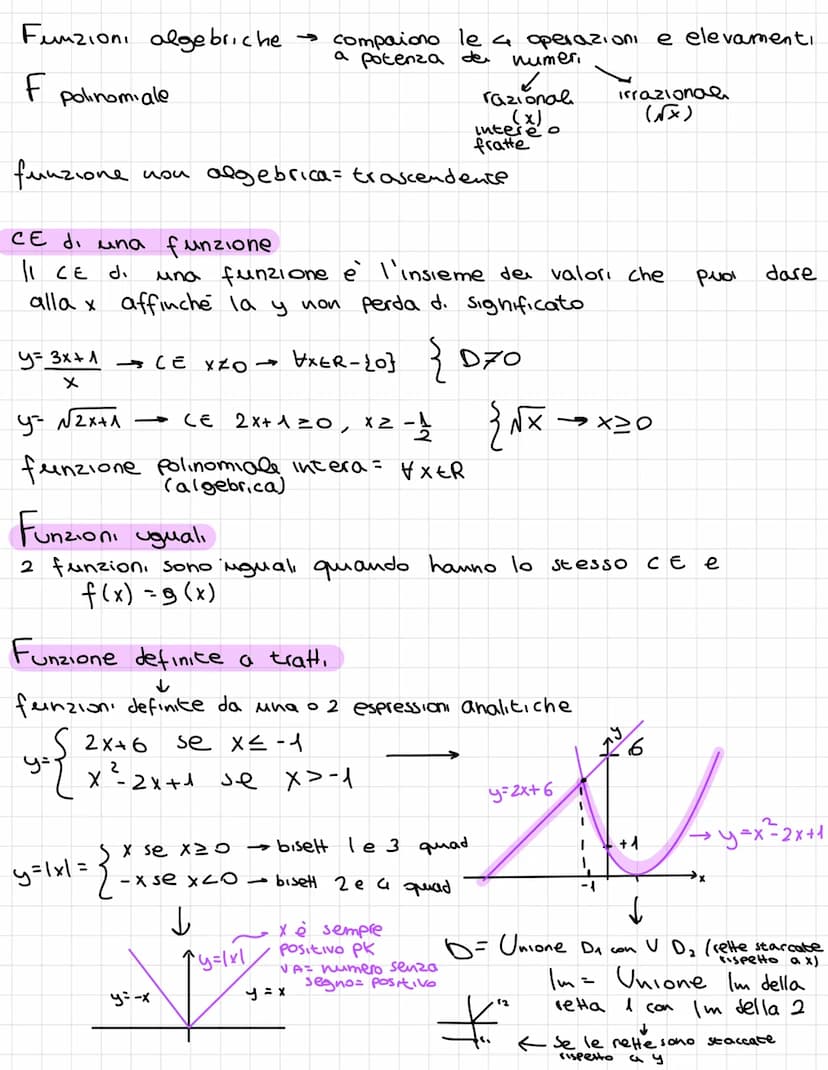 Funzioni algebriche → compaiono le 4 operazioni e elevamenti
a potenza dei numeri
F polinomiale
razionali irrazionali
(x) (√x)
intere o
fratte
funzione non algebrica = trascendente
CE di una funzione
Il CE di una funzione è l'insieme dei valori che puoi dare
alla x affinché la y non perda di significato
y = 3x+1/x → CE x≠0 → ∀x∈R-{0} { D≠0
y = √2x+1 → CE 2x+1≥0, x≥ -1/2 { √x → x≥0
funzione polinomiale intera = ∀x∈R
(algebrica)
Funzioni uguali
2 funzioni sono uguali quando hanno lo stesso CE e
f(x) = g(x)
Funzione definite a tratti
↓
funzioni definite da una o 2 espressioni analitiche
y= { 2x+6 se x≤-1 →
x²-2x+1 se x>-1
y 6
y=2x+6
+1 → y=x²-2x+1
-1 x
y=|x| = { x se x≥0 → bisett 1 e 3 quad
-x se x<0 → bisett 2 e 4 quad
↓
x è sempre
positivo pk
VA= numero senza
segno= positivo
y=|x|
y=-x y=x
D= Unione D1 con U D2 (rette staccate
rispetto a x)
Im = Unione Im della
retta 1 con Im della 2
← se le rette sono staccate
rispetto a y